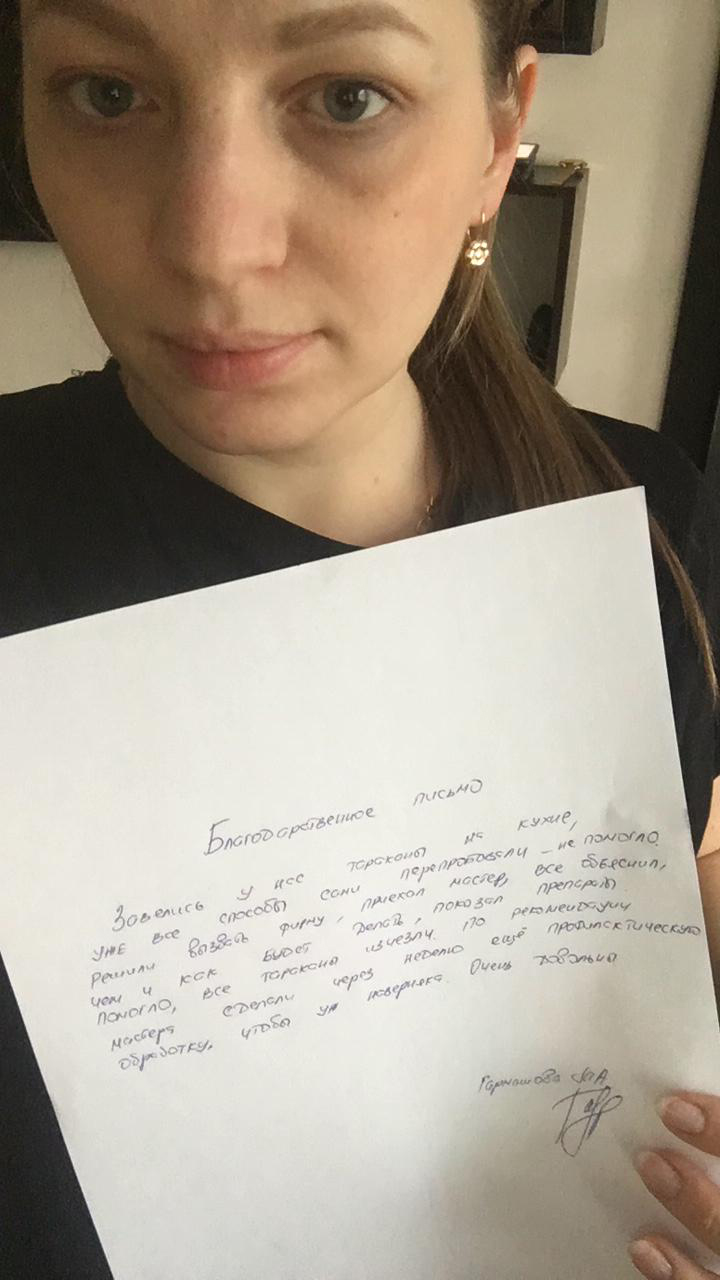 Благодарственное письмо
Завелись у нас тараканы на кухне,
уже все способы сами перепробовали – не помогло.
Решили вызвать фирму, приехал мастер, все объяснил,
чем и как будет делать, показал препараты.
Помогло, все тараканы изчезли. По рекомендации
мастера сделали через неделю ещё профилактическую
обработку, чтобы уж наверняка. Очень довольны
Гармашова